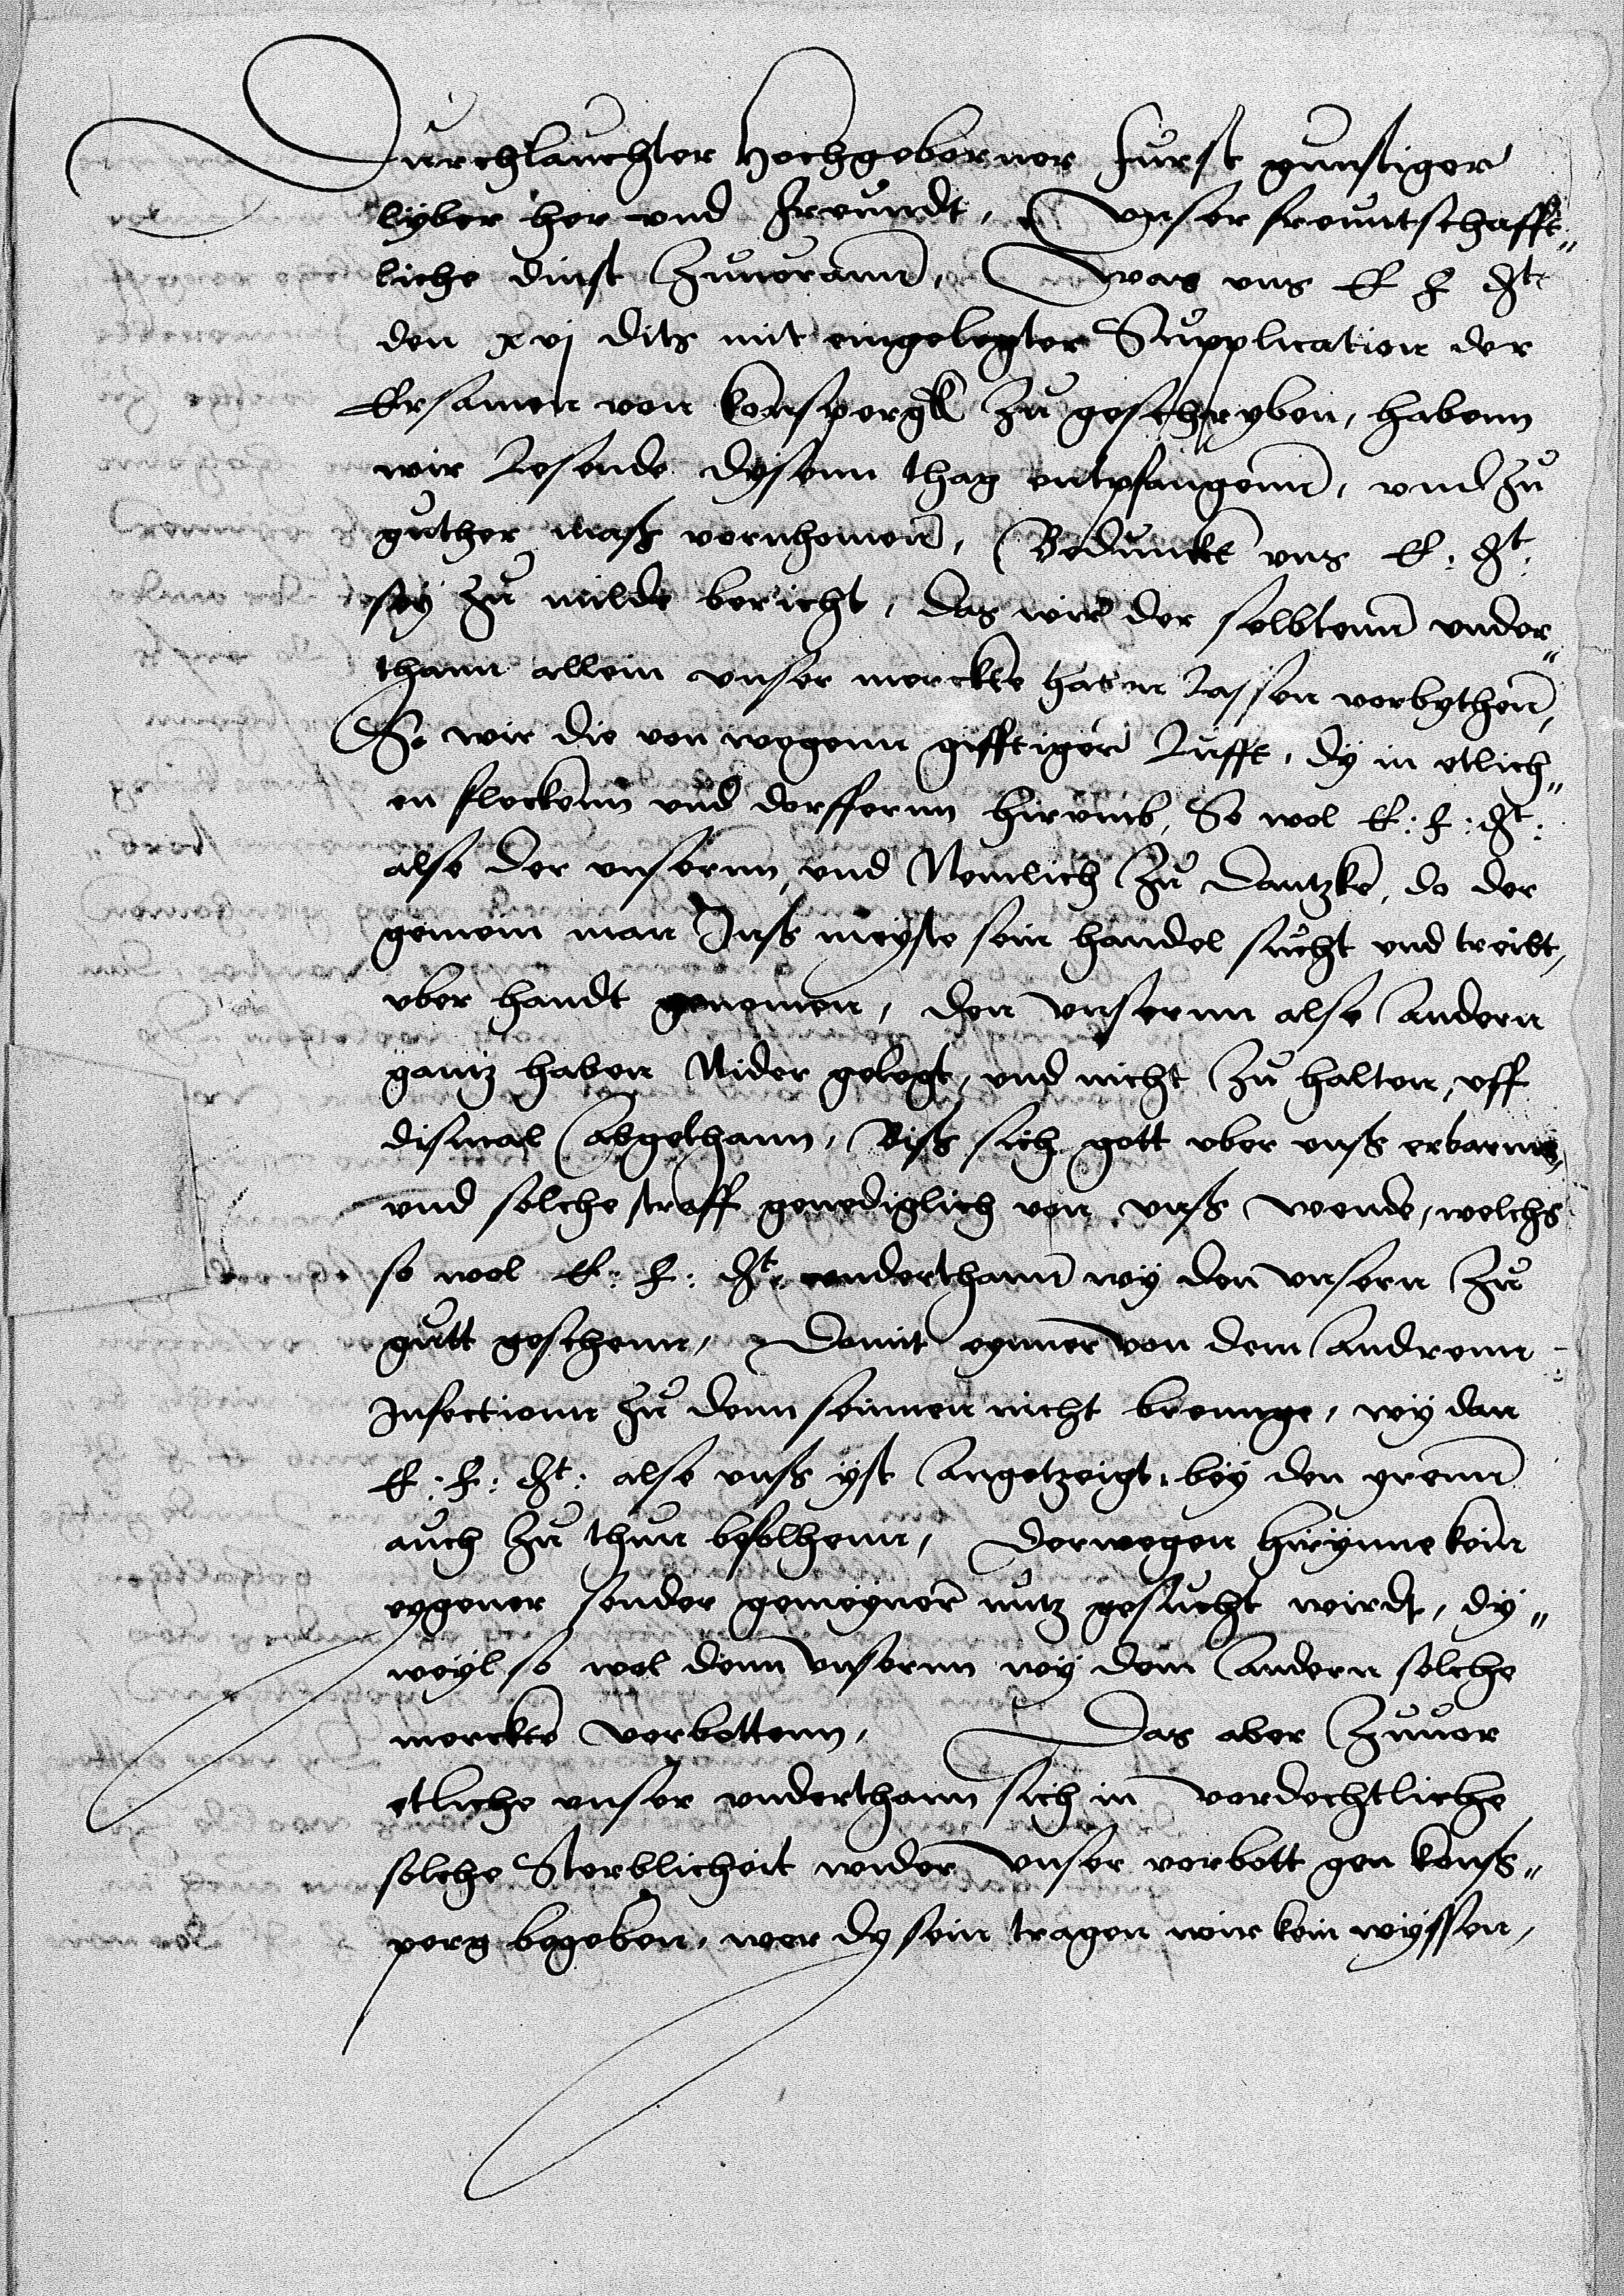 Durchlauchter Hochgeborner furst gunstiger
lyber her vnd freundt, Vnser freuntschafft„
liche dinst Zuuorann, Was vns E F Gt
den xvj dits mit eingelegter Supplication der
Ersamen von konspergk Zu geschryben, habenn
wir lesende dysenn thag entpfangenn, vnd Zu
guther mass vernhomen, Bedunckt vns E: Gt:
sey Zu milde bericht, das wir der selbtenn vnder„
thann allein vnser merckte haben lassen vorbythen,
So wir die von wegenn gifftiger lufft, dy in etlich„
en fleckenn vnd dorffernn hirumb, So wol E: F: Gt:
alse der vnsernn, vnd Nemlich Zu dantzke, do der
gemein man Jnss meyste sein handel sucht vnd treibt,
vber handt genomen, den vnsernn alse andern
gantz haben Nider gelegt, vnd nicht Zu halten, vff
dismal abgethann, Biss sich gott vber vnss erbarme,
vnd solche straff genediglich von vnss wende, welchs
so wol E: F: Gt: vnderthann wy den vnsern Zu
gutt geschenn, Domit eynner von dem andrenn
Jnfectionn Zu denn seinnen nicht brennge, wy dan
E: F: Gt: alse vnss yst angetzeigt, bey den yrenn
auch Zu thun befolhenn, Derwegen hirynne kein
eygener sonder gemeyner nutz gesucht wirdt, dy„
weyl so wol denn vnsernn wy dem andern solche
merckte verbottenn, Das aber Zuuor
etliche vnser vnderthann sich in vordechtliche
solche Sterblicheit wider vnser verbott gen konss„
perg begeben, wer dy sein tragen wir kein wyssen,